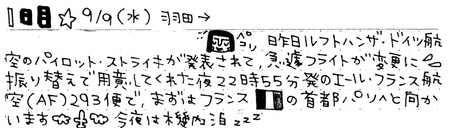 1日目☆9/9(水) 羽田→
ペコリ 昨日ルフトハンザ・ドイツ航
空のパイロット・ストライキが発表されて、急遽フライトが変更に
振り替えで用意してくれた夜22時55分発のエール・フランス航
空(AF)293便で、まずはフランスの首都パリへと向か
います 今夜は機内泊 zzz